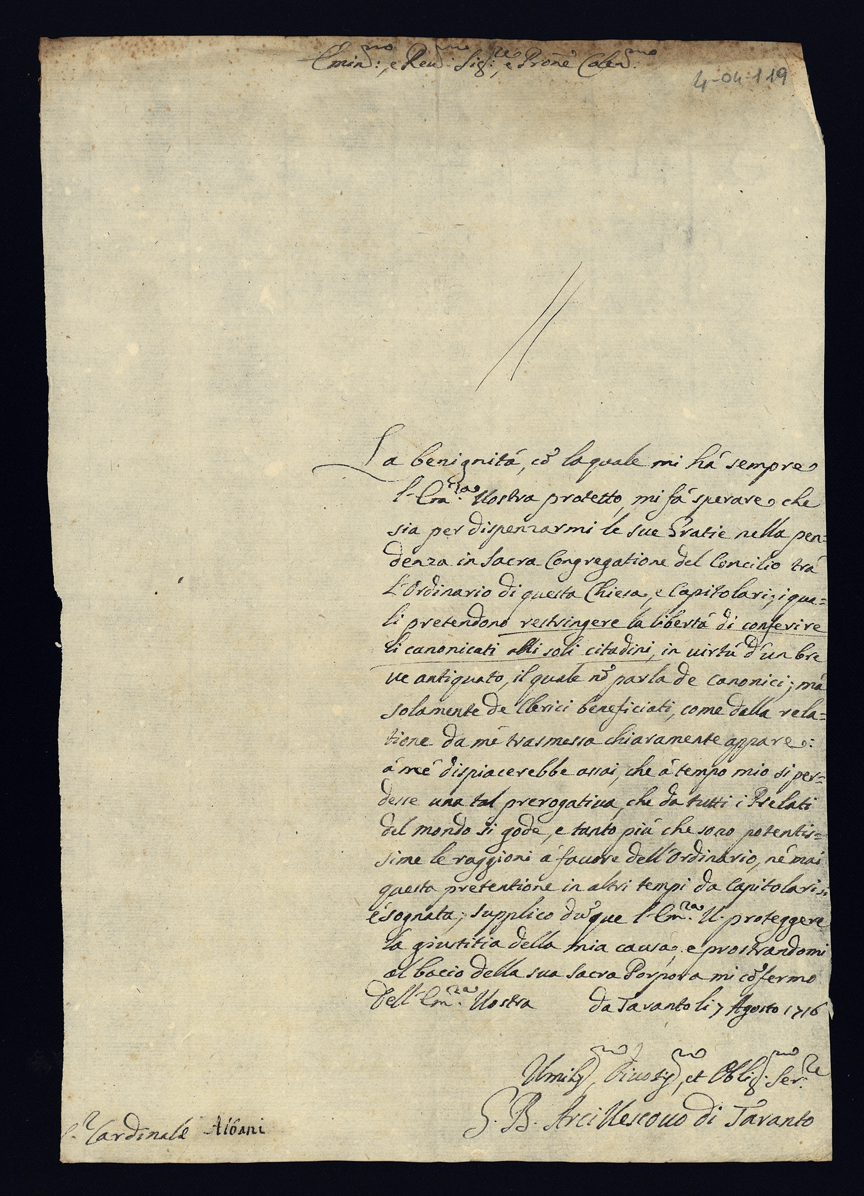 Emin:mo, e Reu:mo Sig:re, e Prone Colen:mo
4-04-119
La benignitá, cõ laquale mi há sempre
l'Em:za Vostra protetto, mi fá sperare che
sia per dispenzarmi le sue Gratie nella pen=
denza in Sacra Congregatione del Concilio trá
L'Ordinario di questa Chiesa, e Capitolari, i qua=
li pretendono restringere la libertá di conferire
li canonicati alli soli citadini, in uirtú d'un bre
ue antiquato, il quale nõ parla de canonici; má
solamente de Clerici beneficiati, come dalla rela=
tione da mé trasmessa chiaramente appare:
á meé dispiacerebbe assai, che á tempo mio si per=
desse una tal prerogatiua, che da tutti i Prelati
del mondo si gode, e tanto piú che sono potentis=
sime le raggioni á fauore dell'Ordinario, né mai
questa pretentione in altri tempi da Capitolari si
é sognata; supplico dũque l'Em:za V. proteggere
la giustitia della mia causa, e prostrandomi
al bacio della sua Sacra Porpora mi cõfermo
Dell'Em:za Vostra da Taranto li 7 Agosto 1716
Umil:mo, Diuot:mo, et Oblig:mo Ser:re
G. B. Arciuescouo di Taranto
S.r Cardinale Albani